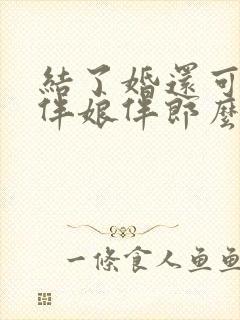 結了婚還可
伴娘伴郎麼
一條食人魚魚